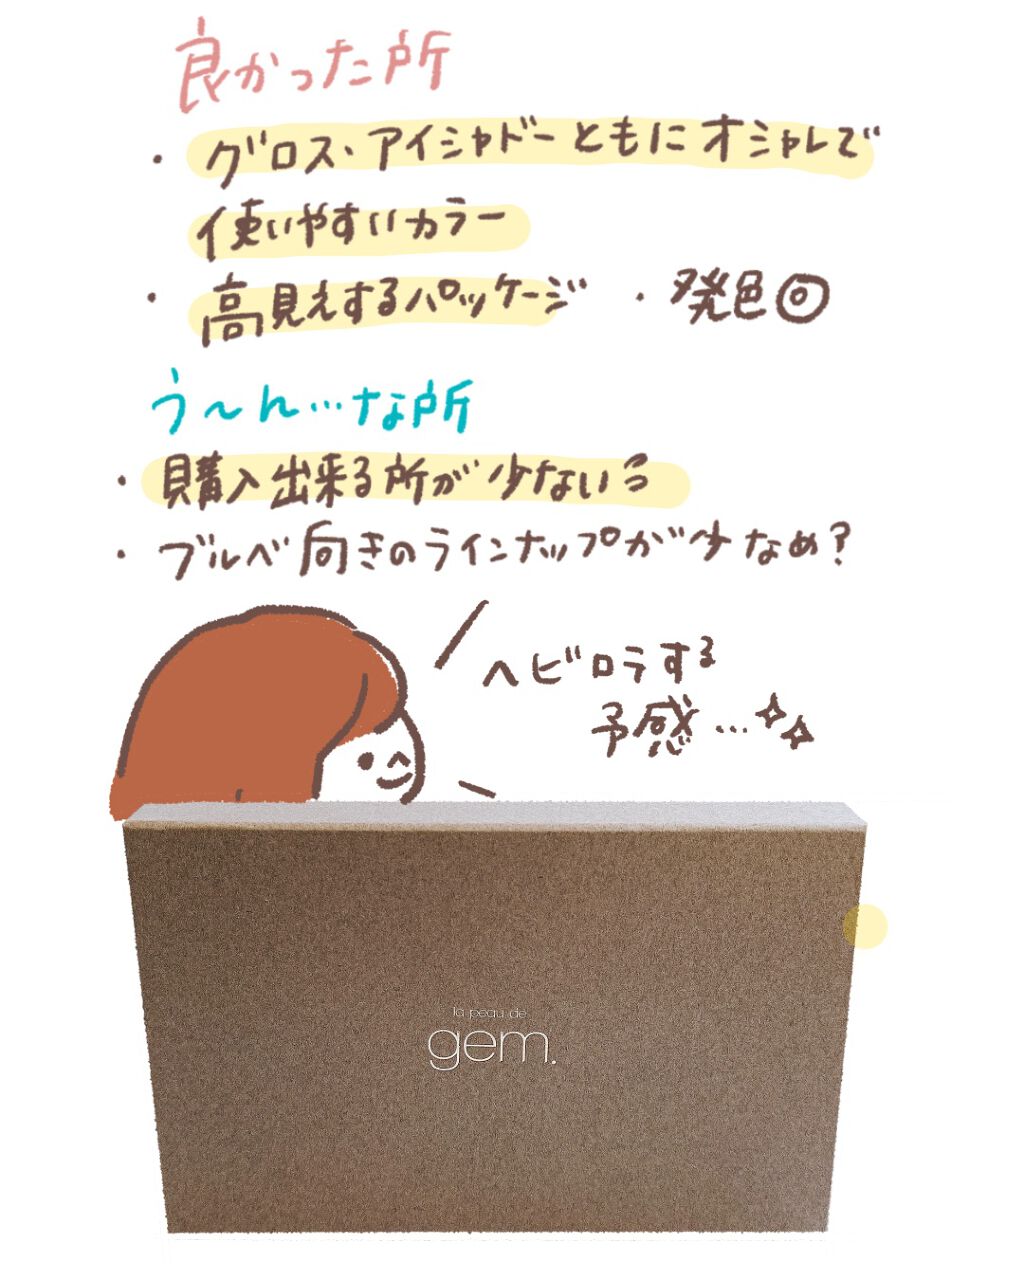 良かった所
・グロス、アイシャドーともにオシャレで
使いやすいカラー
・高見えするパッケージ ・発色◎
う〜ん…な所
・購入出来る所が少ない
・ブルベ向きのラインナップが少なめ?
ヘビロテする
予感…
la peau de
gem.